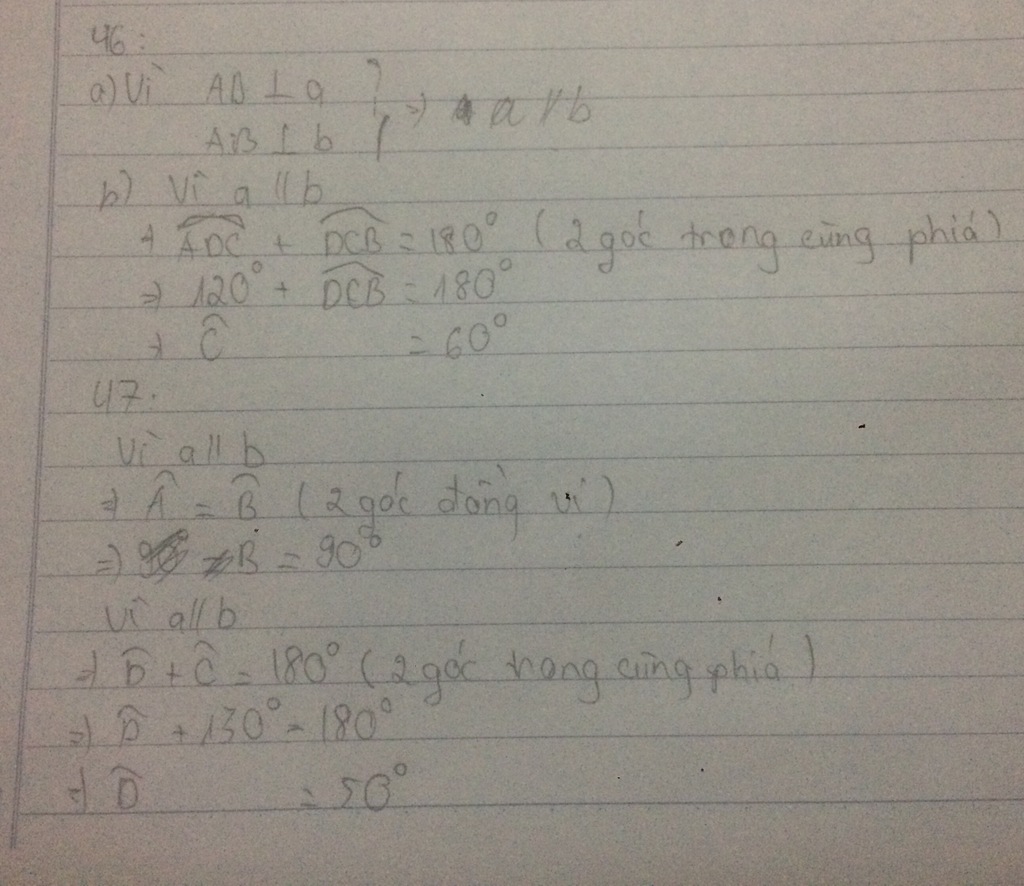 46:
a) Vì AB ⊥ a } ⇒ a // b
AB ⊥ b
b) Vì a // b
⇒ ADC + DCB = 180° (2 góc trong cùng phía)
⇒ 120° + DCB = 180°
⇒ Ĉ = 60°
47.
Vì a // b
⇒ Â = B̂ (2 góc đồng vị)
⇒ B = 90°
Vì a // b
⇒ D̂ + Ĉ = 180° (2 góc trong cùng phía)
⇒ D̂ + 130° = 180°
⇒ D̂ = 50°